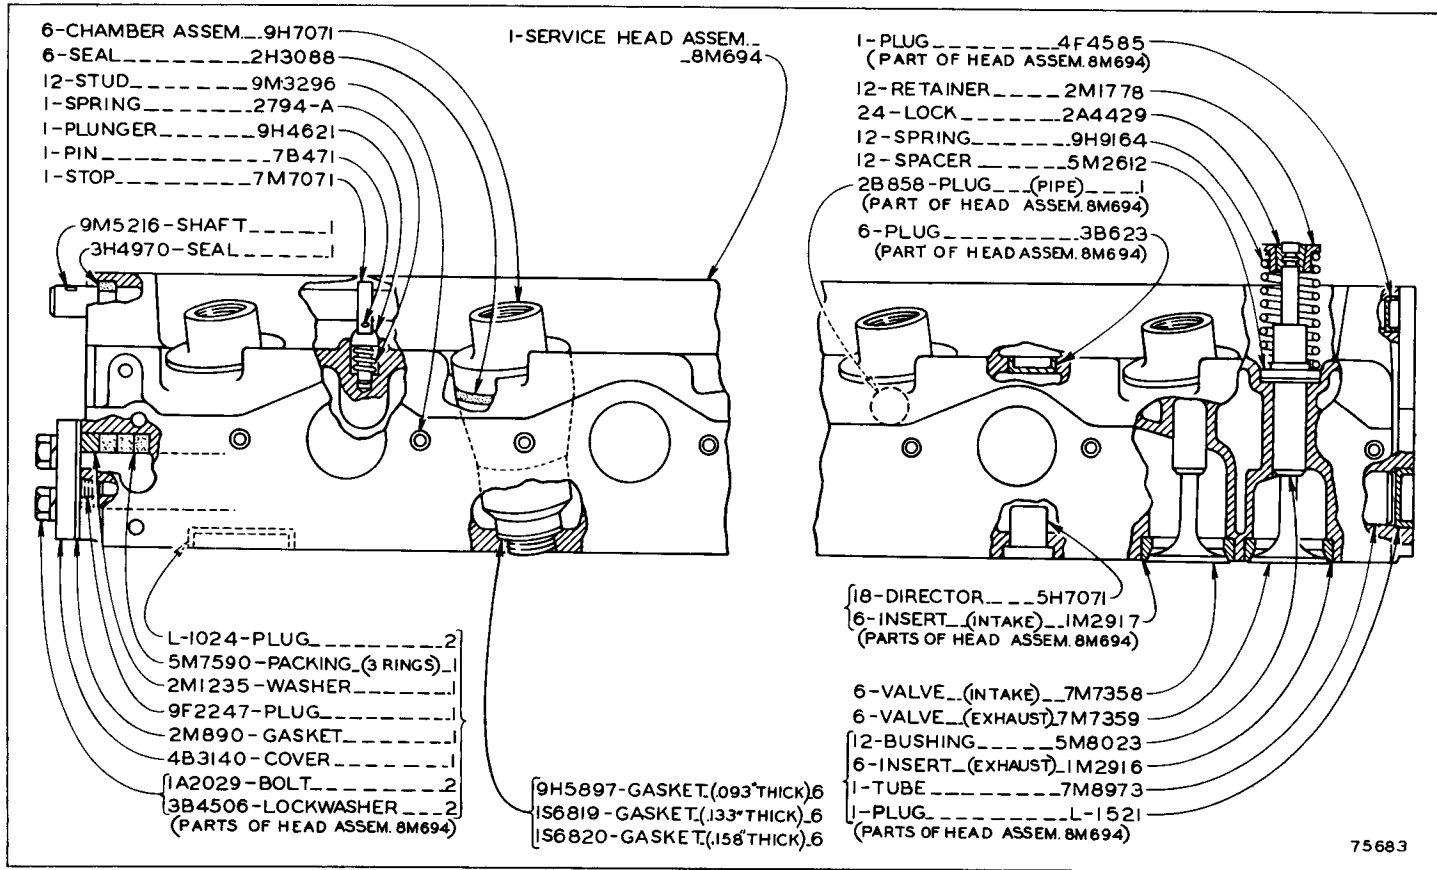 6-CHAMBER ASSEM.__9H7071
6-SEAL________2H3088
12-STUD_______9M3296
1-SPRING_______2794-A
1-PLUNGER______9H4621
1-PIN__________7B471
1-STOP_________7M7071
9M5216-SHAFT_____1
3H4970-SEAL_____1
1-SERVICE HEAD ASSEM._
_8M694
1-PLUG________4F4585
(PART OF HEAD ASSEM. 8M694)
12-RETAINER_____2M1778
24-LOCK______2A4429
12-SPRING______9H9164
12-SPACER_____5M2612
2B858-PLUG___(PIPE)____1
(PART OF HEAD ASSEM. 8M694)
6-PLUG________3B623
(PART OF HEAD ASSEM. 8M694)
L-1024-PLUG________2
5M7590-PACKING_(3 RINGS)_1
2M1235-WASHER______1
9F2247-PLUG_______1
2M890-GASKET______1
4B3140-COVER______1
1A2029-BOLT_______2
3B4506-LOCKWASHER__2
(PARTS OF HEAD ASSEM. 8M694)
9H5897-GASKET_(.093"THICK)_6
1S6819-GASKET_(.133"THICK)_6
1S6820-GASKET_(.158"THICK)_6
18-DIRECTOR____5H7071
6-INSERT__(INTAKE)__1M2917
(PARTS OF HEAD ASSEM. 8M694)
6-VALVE__(INTAKE)_7M7358
6-VALVE__(EXHAUST)_7M7359
12-BUSHING_____5M8023
6-INSERT__(EXHAUST)_1M2916
1-TUBE________7M8973
1-PLUG_________L-1521
(PARTS OF HEAD ASSEM. 8M694)
75683